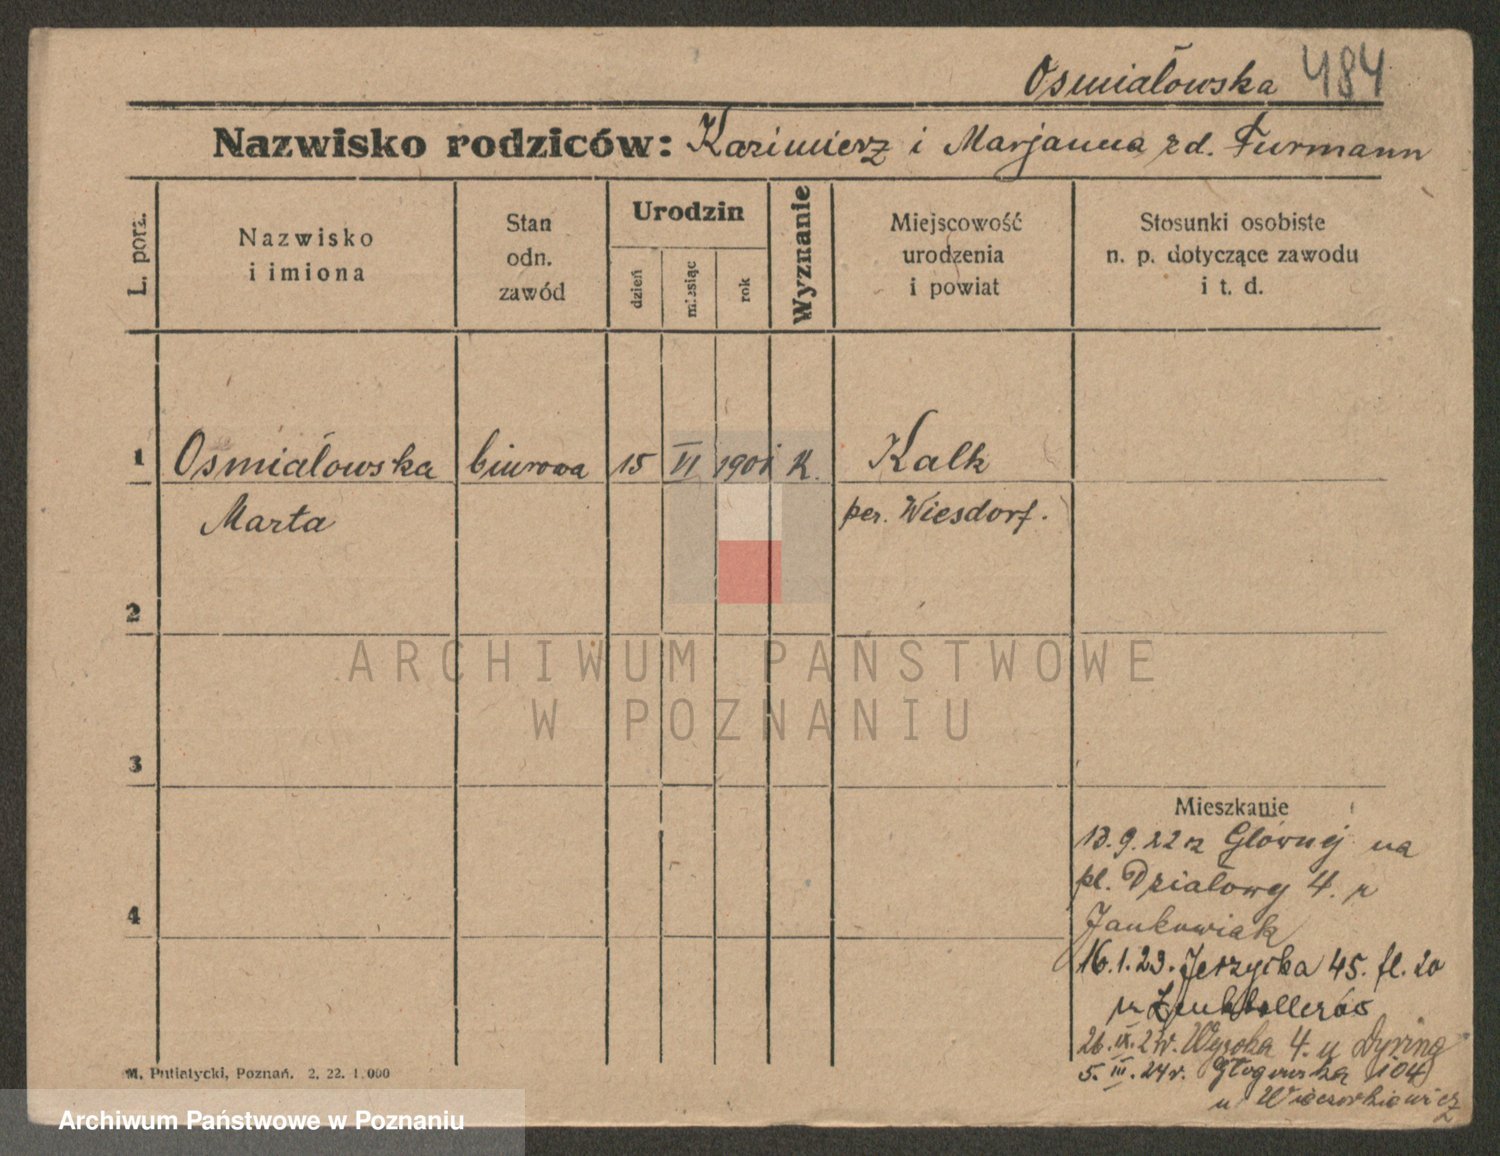 Osmiałowska 484
Nazwisko rodziców: Kazimierz i Marjanna zd. Furmann
L. porz.
Nazwisko
i imiona
Stan
odn.
zawód
Urodzin
dzień
miesiąc
rok
Wyznanie
Miejscowość
urodzenia
i powiat
Stosunki osobiste
n. p. dotyczące zawodu
i t. d.
1 Osmiałowska biurowa 15 VI 1901 K. Kalk
Marta per. Wiesdorf.
2
3
4
Mieszkanie
13.9.22 z Głównej na
pl. Działowy 4. p
Jankowiak
16.1.23. Jeżycka 45. fl. 20
26.IX.2 Wysoka 4. u Dyring
5.III.24r. Głogowska 104
u Wieczorkiewicz
M. Putiatycki, Poznań. 2. 22. 1.000
ARCHIWUM PAŃSTWOWE
W POZNANIU
Archiwum Państwowe w Poznaniu